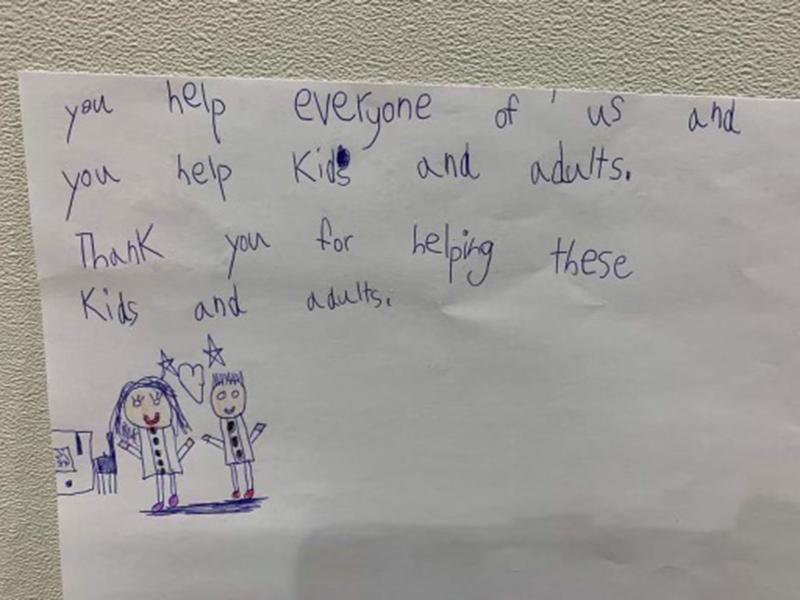 you help everyone of us and
you help Kids and adults.
Thank you for helping these
Kids and adults.